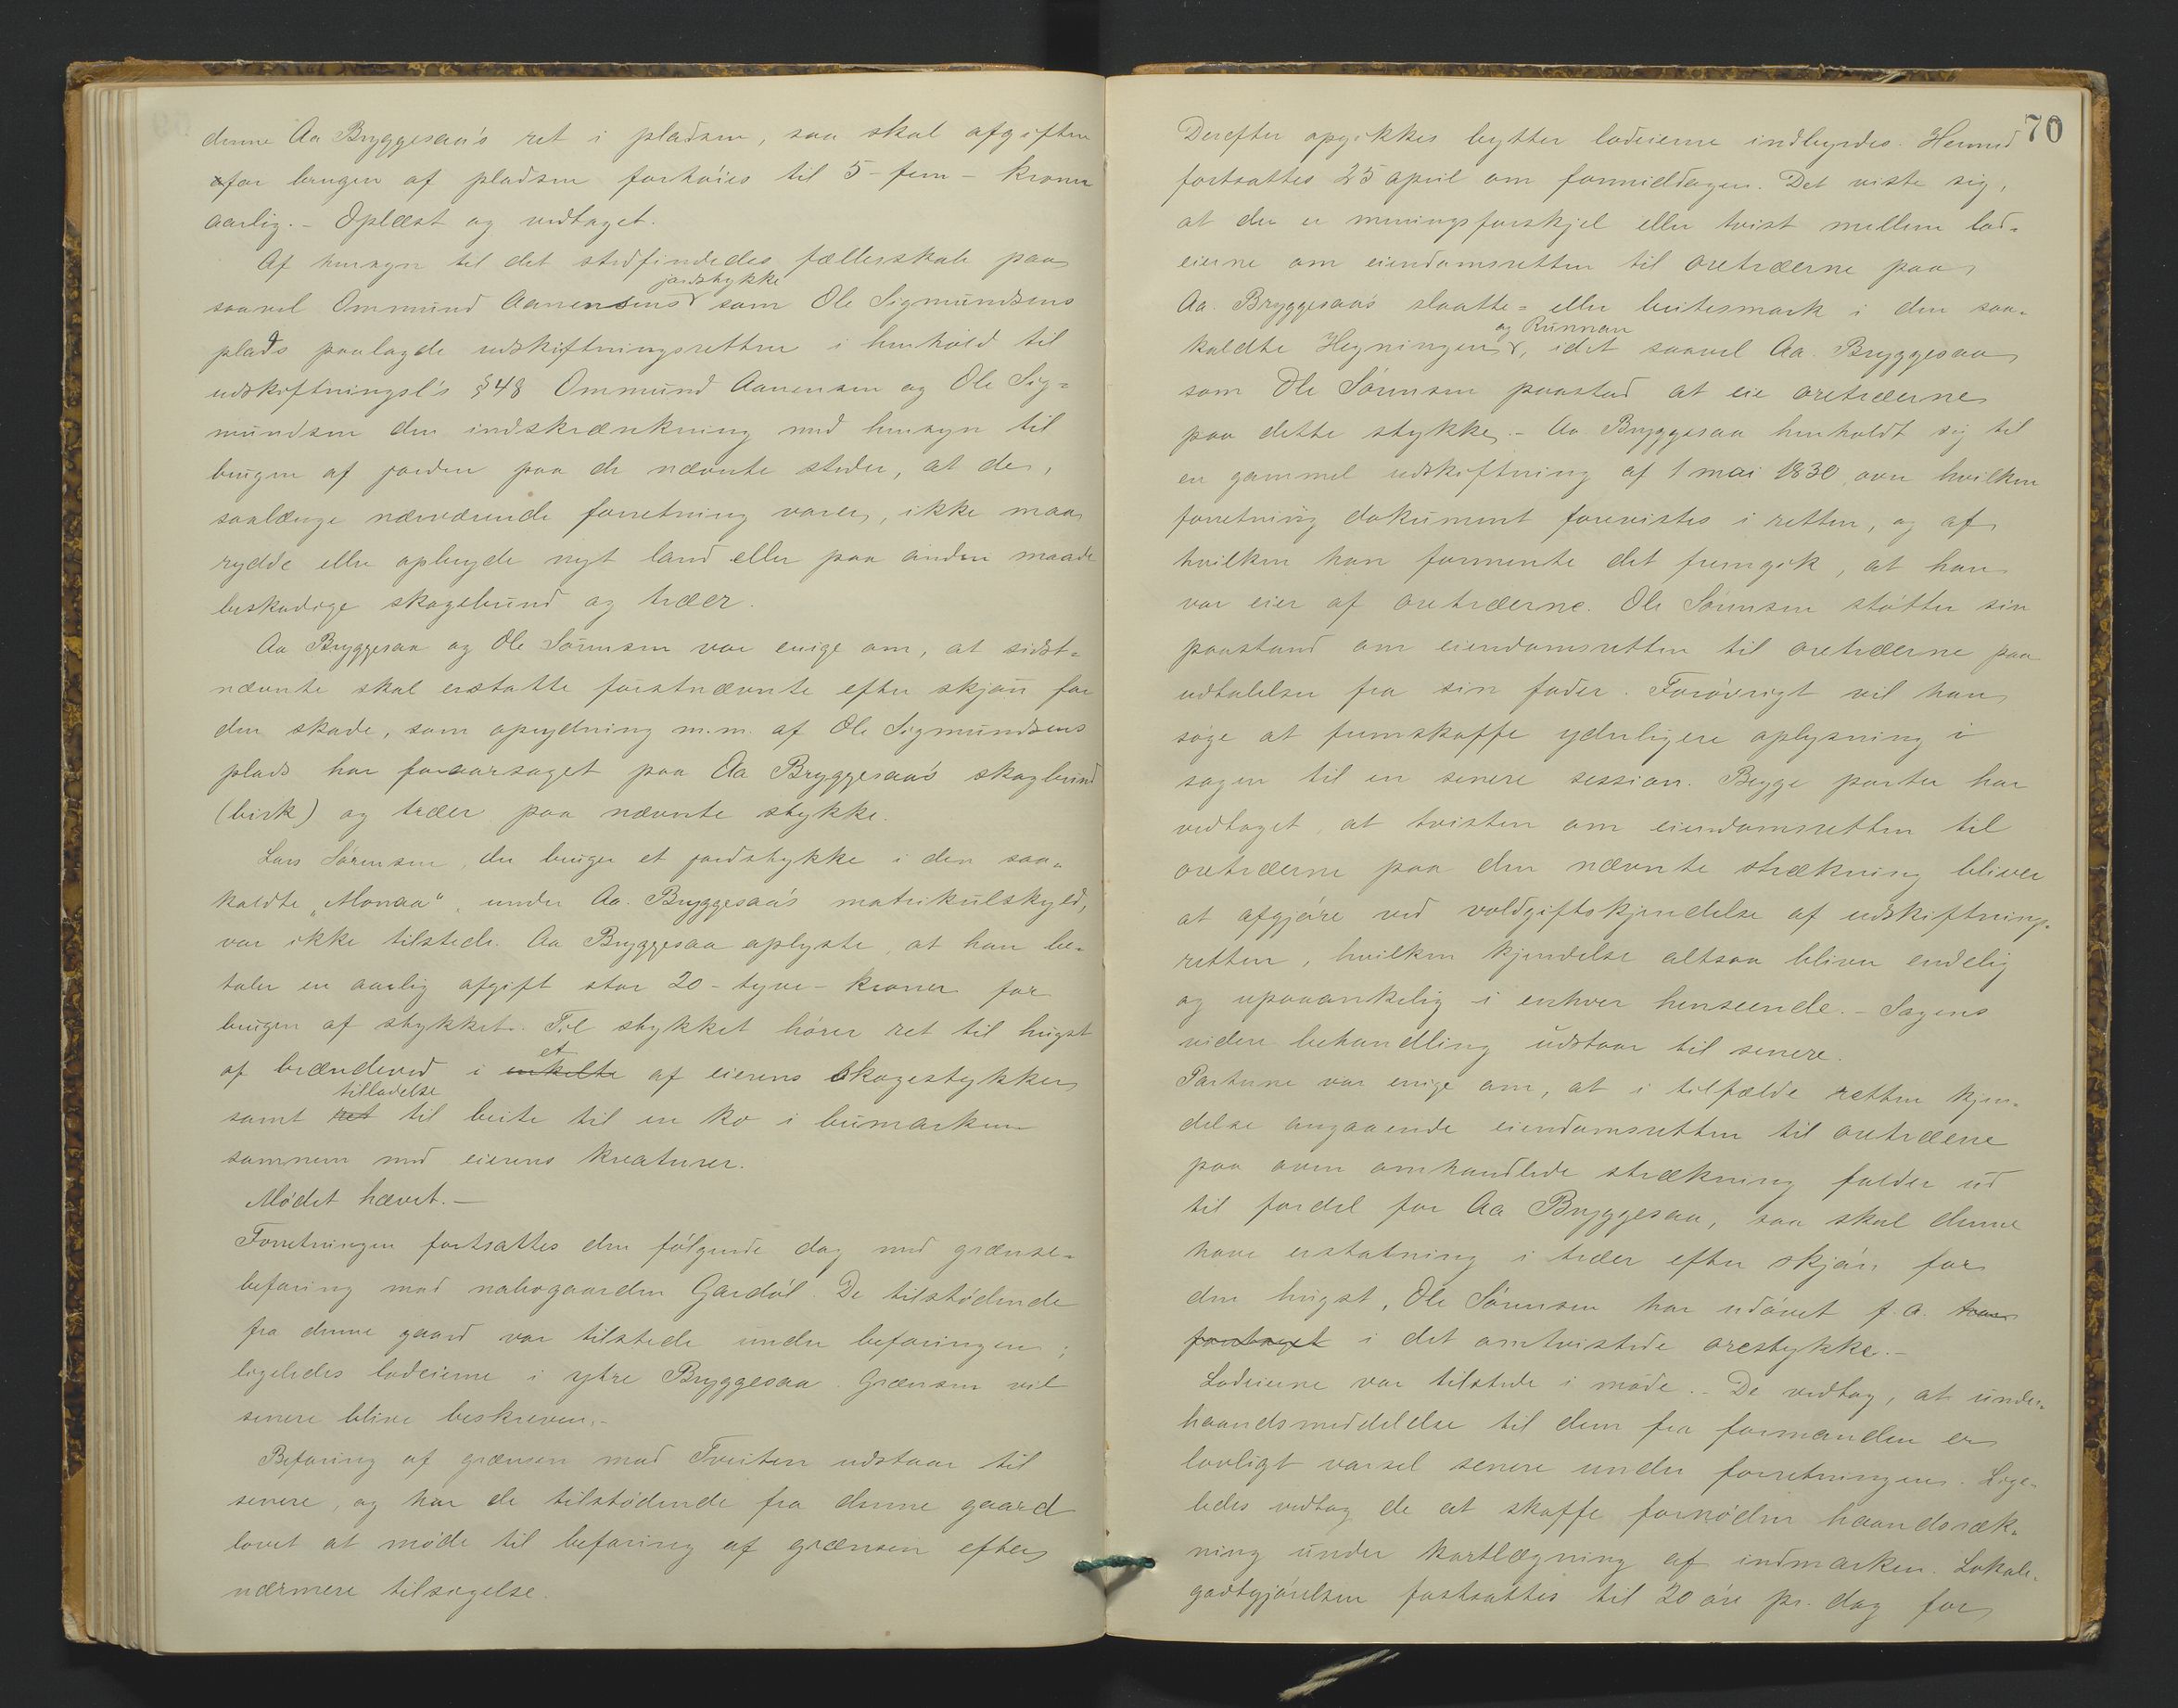 denne Aa Bryggesaa's ret i pladsen, saa skal afgiften
for brugen af pladsen forhøies til 5 - fem - kroner
aarlig. - Oplæst og vedtaget.
Af hensyn til det stedfindedes fællesskab paa
jordstykke
saavel Ommund Aanensens som Ole Sigmundsens
plads paalagde udskiftningsretten i henhold til
udskiftningsl's § 48 Ommund Aanensen og Ole Sig=
mundsen den indskrænkning med hensyn til
brugen af jorden paa de nævnte steder, at de,
saalænge nærværende forretning varer, ikke maa
rydde eller opbryde nyt land eller paa anden maade
beskadige skogebund og træer.
Aa Bryggesaa og Ole Sörensen var enige om, at sidst=
nævnte skal erstatte førstnævnte efter skjøn for
den skade, som oprydning m.m. af Ole Sigmundsens
plads har foraarsaget paa Aa Bryggesaa's skogbund
(birk) og træer paa nævnte stykke.
Lars Sörensen, der bruger et jordstykke i den saa=
kaldte „Monaa“, under Aa. Bryggesaa's matrikulskyld,
var ikke tilstede. Aa Bryggesaa oplyste, at han be=
taler en aarlig afgift stor 20 - tyve - kroner for
brugen af stykket. Til stykket hører ret til hugst
et
af brændeved i enkelte af eierens skogestykker
tilladelse
samt ret til beite til en ko i bumarken
sammen med eierens kreaturer.
Mödet hævet. -
Forretningen fortsattes den følgende dag med grænse=
befaring mod nabogaarden Gardöl. De tilstødende
fra denne gaard var tilstede under befaringen;
ligeledes lodeierne i ytre Bryggesaa. Grænsen vil
senere blive beskreven. -
Befaring af grænsen mod Tveiten udstaar til
senere, og har de tilstødende fra denne gaard
lovet at møde til befaring af grænsen efter
nærmere tilsigelse.
70
Derefter opgikkes bytter lodeierne indbyrdes. Hermed
fortsattes 25 april om formiddagen. Det viste sig,
at der er meningsforskjel eller tvist mellem lod=
eierne om eiendomsretten til oretræerne paa
Aa. Bryggesaa's slaatte= eller beitesmark i den saa=
og Runnan
kaldte Hegningen, idet saavel Aa. Bryggesaa
som Ole Sörensen paastod at eie oretræerne
paa dette stykke. - Aa Bryggesaa henholdt sig til
en gammel udskiftning af 1 mai 1830, over hvilken
forretning dokument forevistes i retten, og af
hvilken han formente det fremgik, at han
var eier af oretræerne. Ole Sörensen støtter sin
paastand om eiendomsretten til oretræerne paa
udtalelser fra sin fader. Forøvrigt vil han
søge at fremskaffe yderligere oplysning i
sagen til en senere session. Begge parter har
vedtaget, at tvisten om eiendomsretten til
oretræerne paa den nævnte strækning bliver
at afgjøre ved voldgiftskjendelse af udskiftnings=
retten, hvilken kjendelse altsaa bliver endelig
og upaaankelig i enhver henseende. - Sagens
videre behandling udstaar til senere.
Parterne var enige om, at i tilfælde rettens kjen=
delse angaaende eiendomsretten til oretræerne
paa oven omhandlede strækning falder ud
til fordel for Aa Bryggesaa, saa skal denne
have erstatning i træer efter skjøn for
den hugst, Ole Sörensen har udøvet f. a.
foretaget i det omtvistede orestykke. -
Lodeierne var tilstede i møde. - De vedtog, at under=
haandsmeddelelse til dem fra formanden er
lovligt varsel senere under forretningen. Lige=
ledes vedtog de at skaffe fornøden haandsræk=
ning under kartlægning af indmarken. Lokale=
godtgjørelsen fastsattes til 20 øre pr. dag for